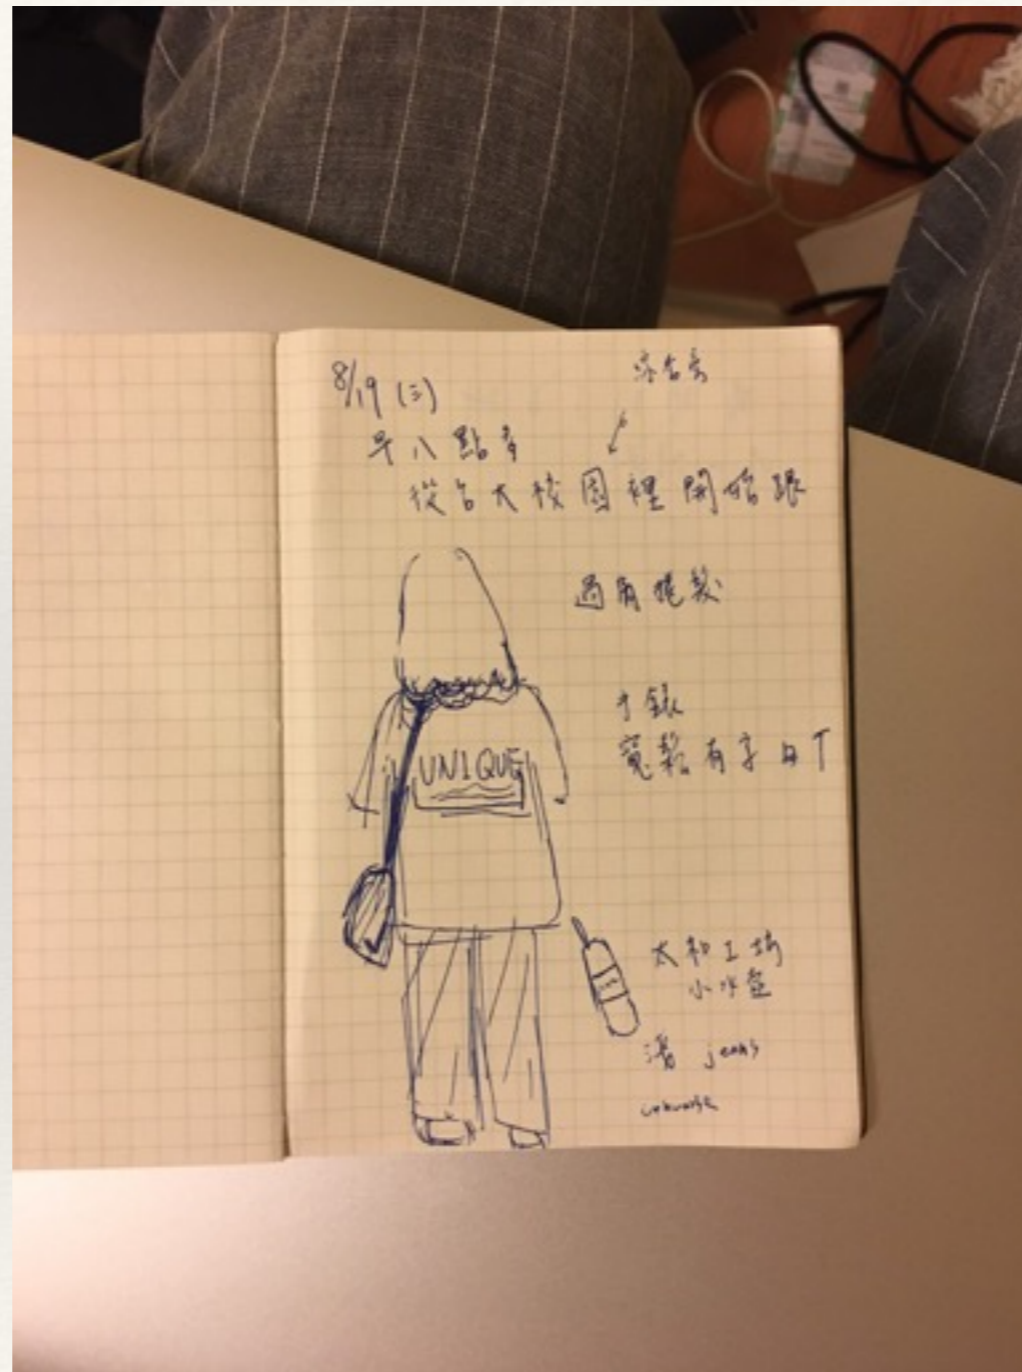 8/19 (三)
早八點多
從台大校園裡開始跟
過肩捲髮
手錶
寬鬆有字白T
UNIQUE
太和工坊
小水壺
jeans
converse